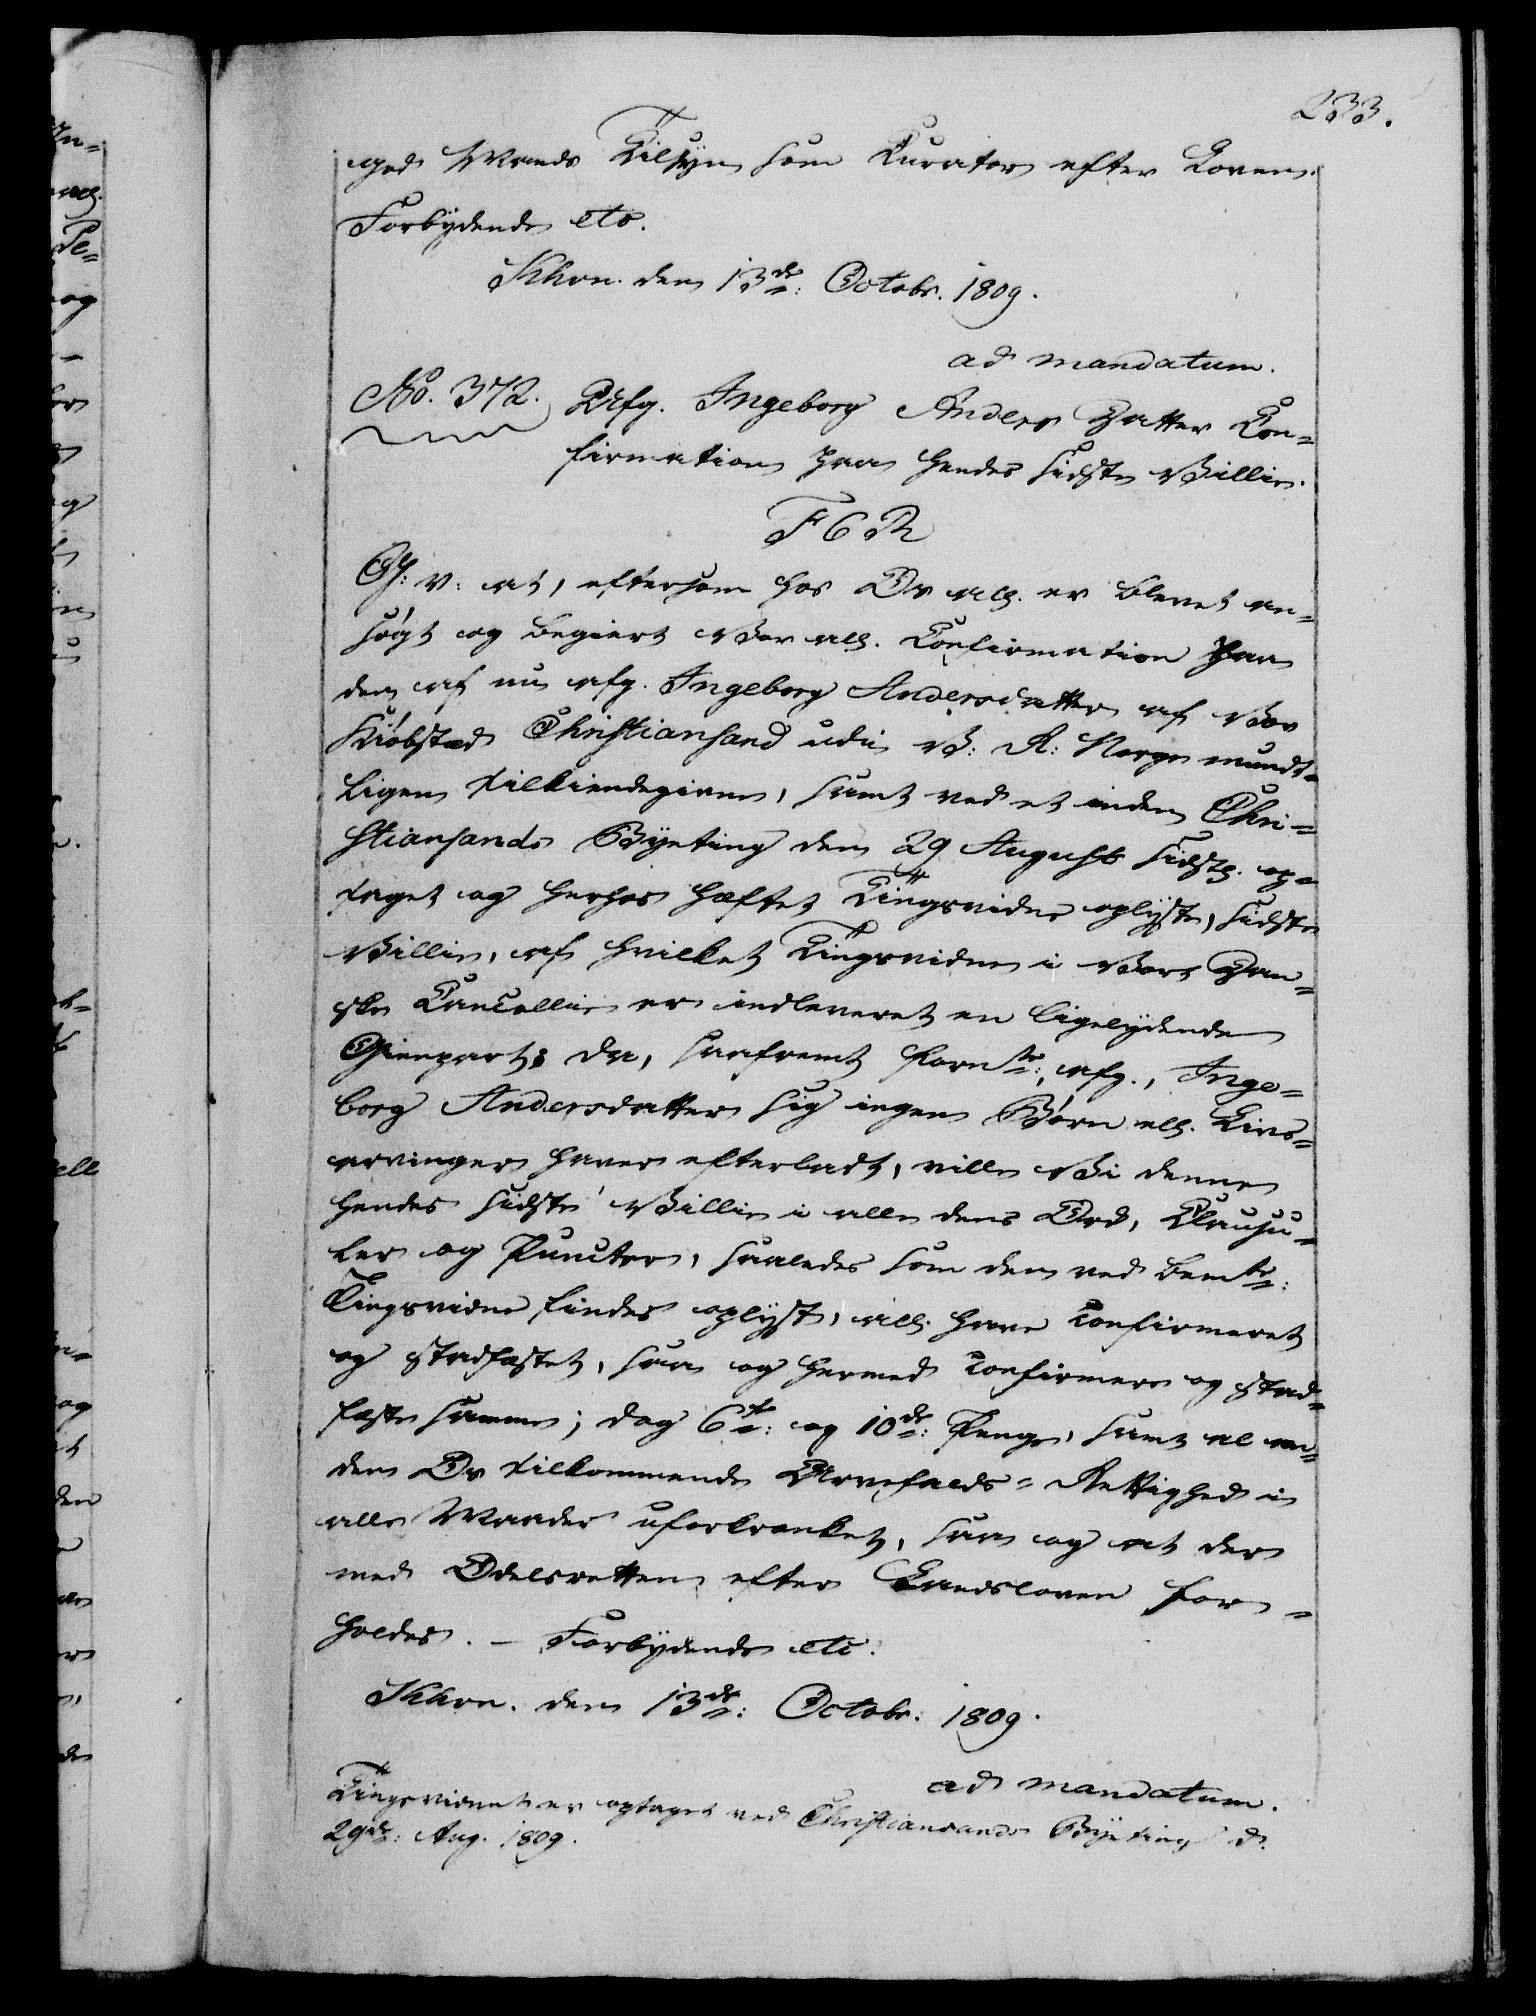 233.
god Mands Tilsyn som Curator efter Loven.
Forbydende etc.
Khvn. den 13de: Octobr. 1809.
ad mandatum.
No. 372. Afg. Ingeborg Anders Datter Con-
firmation paa hendes sidste Villie.
F6R
G: v: at, eftersom hos Os all. er blevet an-
søgt og begiert Vor all. Confirmation paa
den af nu afg. Ingeborg Andersdatter af Vor
Kiøbstæd Christiansand udi V: R: Norge mundt-
ligen tilkiendegivne, samt ved et inden Chri-
stiansands Byeting den 29 August sidstl. op-
taget og herhos hæftet Tingsvidne oplyste, sidste
Villie, af hvilket Tingsvidne i Vort Dan-
ske Cancellie er indleveret en ligelydende
Gienpart; da, saafremt fornte: afg., Inge-
borg Andersdatter sig ingen Børn ell. Livs-
arvinger haver efterladt, ville Vi denne
hendes sidste Villie i alle dens Ord, Clausu-
ler og Puncter, saaledes som den ved bemte:
Tingsvidne findes oplyst, all. have confirmeret
og stadfæstet, saa og hermed confirmere og stad-
fæste samme; dog 6te: og 10de: Penge, samt al an-
den Os tilkommende Arvefalds-Rettighed i
alle Maader uforkrænket, saa og at der
med Odelsretten efter Landsloven for-
holdes. - Forbydende etc.
Khvn. den 13de: Octobr. 1809.
ad mandatum.
Tingsvidnet er optaget ved Christiansands Byeting d.
29de: Aug. 1809.